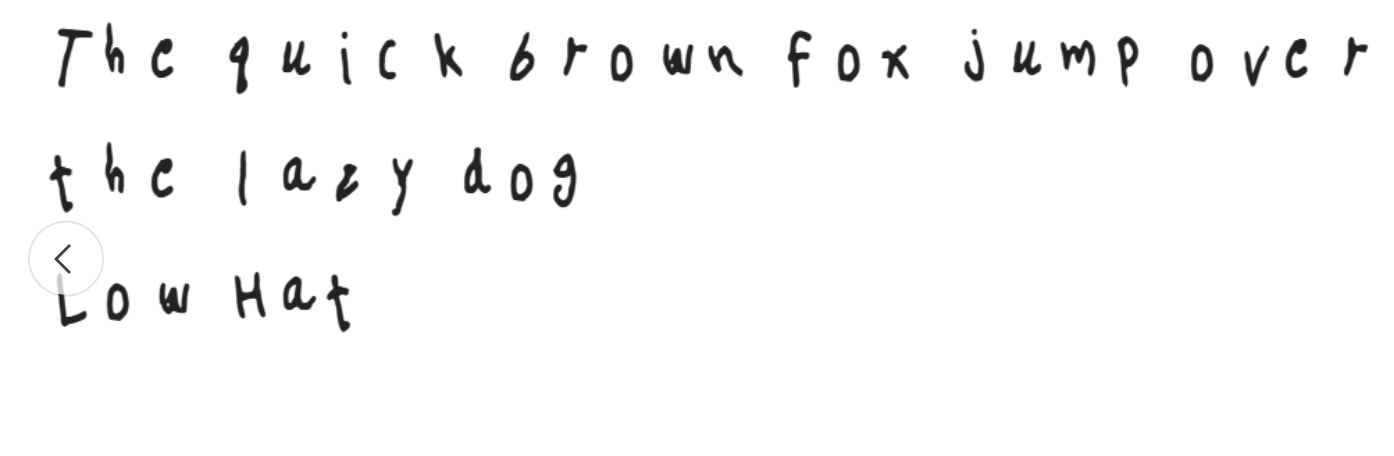 The quick brown fox jump over
the lazy dog
Low Hat